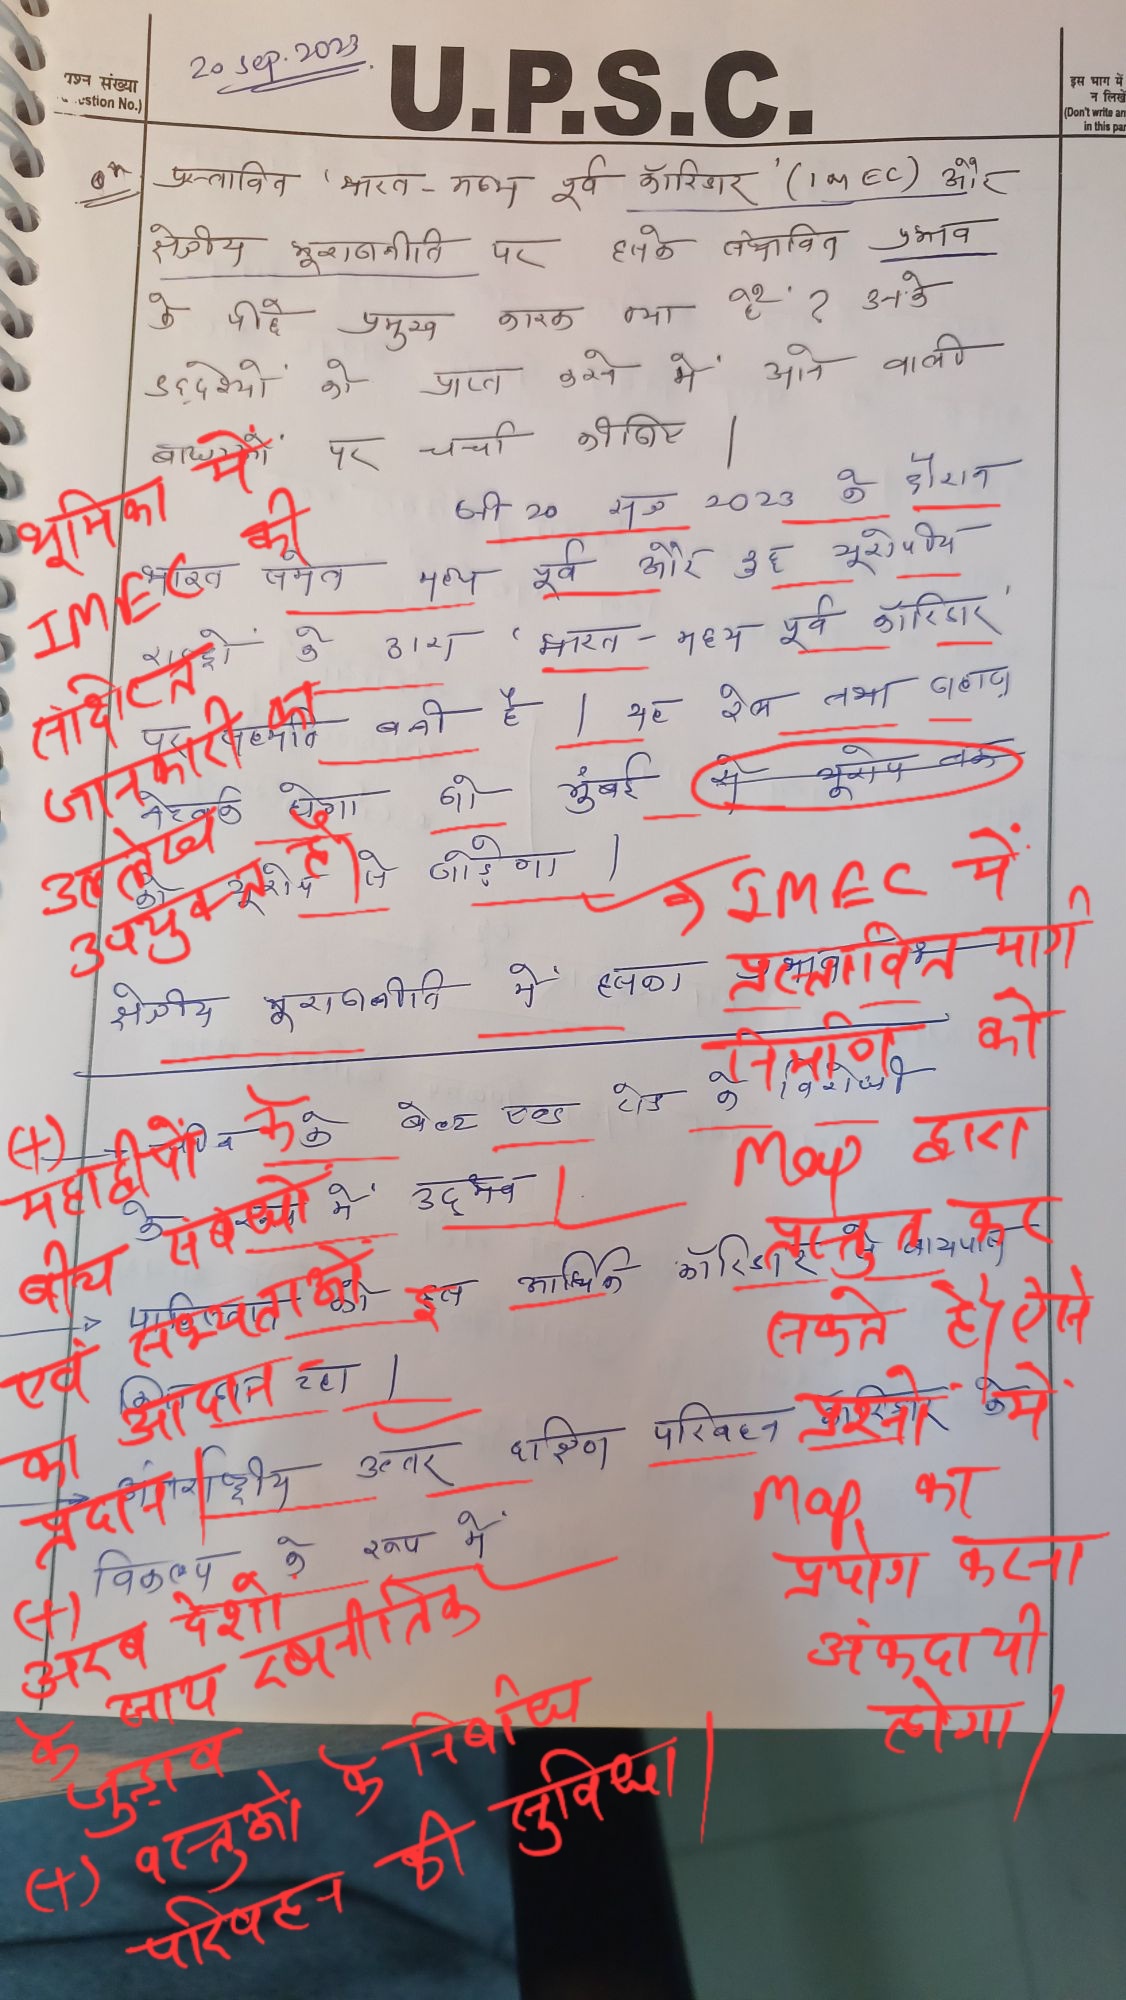 20 Sep. 2023
U.P.S.C.
प्रश्न संख्या
(Question No.)
इस भाग में
न लिखें
(Don't write an
in this par
प्रस्तावित 'भारत - मध्य पूर्व कॉरिडार' (IMEC) और
क्षेत्रीय भूराजनीति पर इसके संभावित प्रभाव
के पीछे प्रमुख कारक क्या है ? उनके
उद्देश्यों को प्राप्त करने में आने वाली
बाधाओं पर चर्चा कीजिए |
जी 20 सत्र 2023 के दौरान
भारत समेत मध्य पूर्व और कुछ यूरोपीय
राष्ट्रों के द्वारा 'भारत - मध्य पूर्व कॉरिडार'
पर सहमति बनी है | यह रेल तथा जहाज
नेटवर्क होगा जो मुंबई से यूरोप तक
को यूरोप से जोड़ेगा |
क्षेत्रीय भूराजनीति में इसका प्रभाव
के बेल्ट एण्ड रोड के विरोधी
के रूप में उद्भव |
पाकिस्तान को इस आर्थिक कॉरिडार से बायपास
किया जा रहा |
अंतर्राष्ट्रीय उत्तर दक्षिण परिवहन कॉरिडोर के
विकल्प के रूप में
भूमिका में
IMEC की
संक्षिप्त
जानकारी का
उल्लेख
उपयुक्त है|
IMEC में
प्रस्तावित मार्ग
निर्माण को
Map द्वारा
प्रस्तुत कर
सकते है, ऐसे
प्रश्नों में
Map का
प्रयोग करना
अंकदायी
होगा |
(+)
महाद्वीपों के
बीच संबन्धों
एवं सभ्यताओं
का आदान
प्रदान |
(+)
अरब देशों
के साथ रणनीतिक
जुड़ाव
(+) वस्तुओं के निर्बाध
परिवहन की सुविधा |